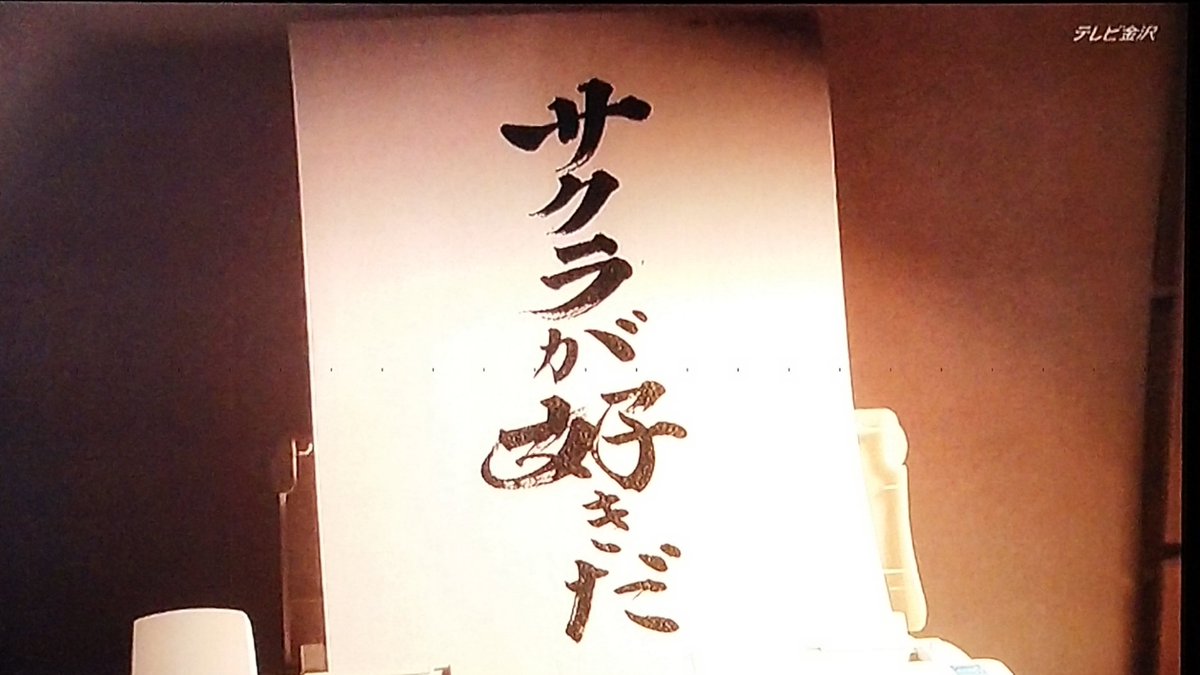 テレビ金沢
サクラが好きだ